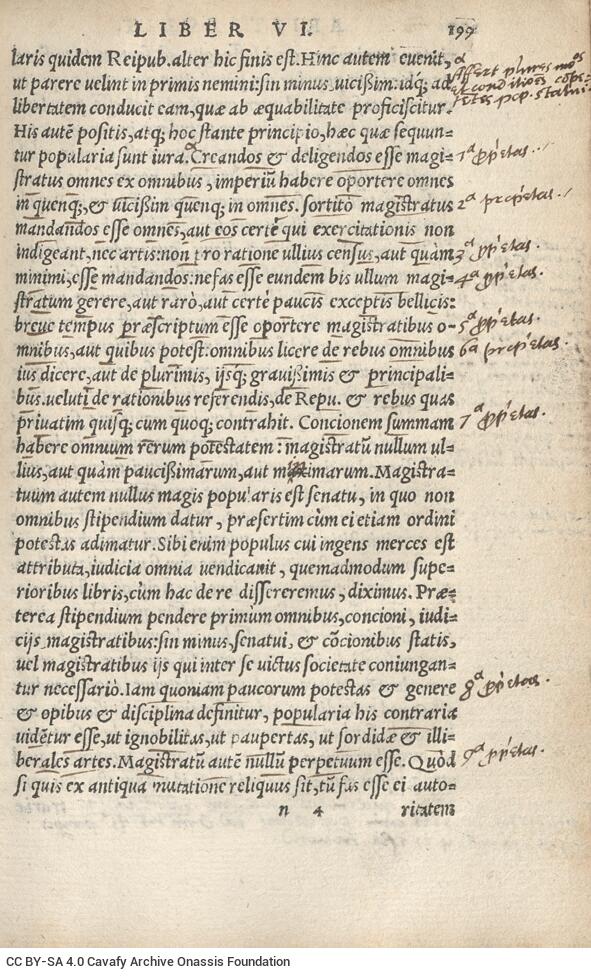 LIBER VI.
199
laris quidem Reipub. alter hic finis est. Hinc autem euenit,
ut parere uelint in primis nemini: sin minus uicißim. idq; ad
libertatem conducit eam, quæ ab æquabilitate proficiscitur.
His autē positis, atq; hoc stante principio, hæc quæ sequun=
tur popularia sunt iura. Creandos & deligendos esse magi=
stratus omnes ex omnibus, imperiū habere oportere omnes
in quenq;, & uicißim quenq; in omnes. sortitò magistratus
mandandos esse omnes, aut eos certè qui exercitationis non
indigeant, nec artis: non pro ratione ullius census, aut quàm
minimi, esse mandandos: nefas esse eundem bis ullum magi=
stratum gerere, aut rarò, aut certè paucis exceptis bellicis:
breue tempus præscriptum esse oportere magistratibus o=
mnibus, aut quibus potest: omnibus licere de rebus omnibus
ius dicere, aut de plurimis, ijsq; grauißimis & principali=
bus. ueluti de rationibus referendis, de Repu. & rebus quas
priuatim quisq; cum quoq; contrahit. Concionem summam
habere omnium rerum potestatem: magistratū nullum ul=
lius, aut quàm paucißimarum, aut minimarum. Magistra=
tuum autem nullus magis popularis est senatu, in quo non
omnibus stipendium datur, præsertim cùm ei etiam ordini
potestas adimatur. Sibi enim populus cui ingens merces est
attributa, iudicia omnia uendicauit, quemadmodum supe=
rioribus libris, cùm hac de re dissereremus, diximus. Præ=
terea stipendium pendere primùm omnibus, concioni, iudi=
cijs, magistratibus: sin minus, senatui, & cōcionibus statis,
uel magistratibus ijs qui inter se uictus societate coniungan=
tur necessariò. Iam quoniam paucorum potestas & genere
& opibus & disciplina definitur, popularia his contraria
uidētur esse, ut ignobilitas, ut paupertas, ut sordidæ & illi=
berales artes. Magistratū autē nullū perpetuum esse. Quòd
si quis ex antiqua mutatione reliquus sit, tū fas esse ei auto=
n 4 ritatem
Affert plures
et conditiones
1ª ppřetas.
2ª prcpřetas.
3ª ppřetas.
4ª ppřetas.
5ª ppřetas.
6ª prcpřetas.
7ª ppřetas.
8ª ppřetas.
9ª ppřetas.
CC BY-SA 4.0 Cavafy Archive Onassis Foundation